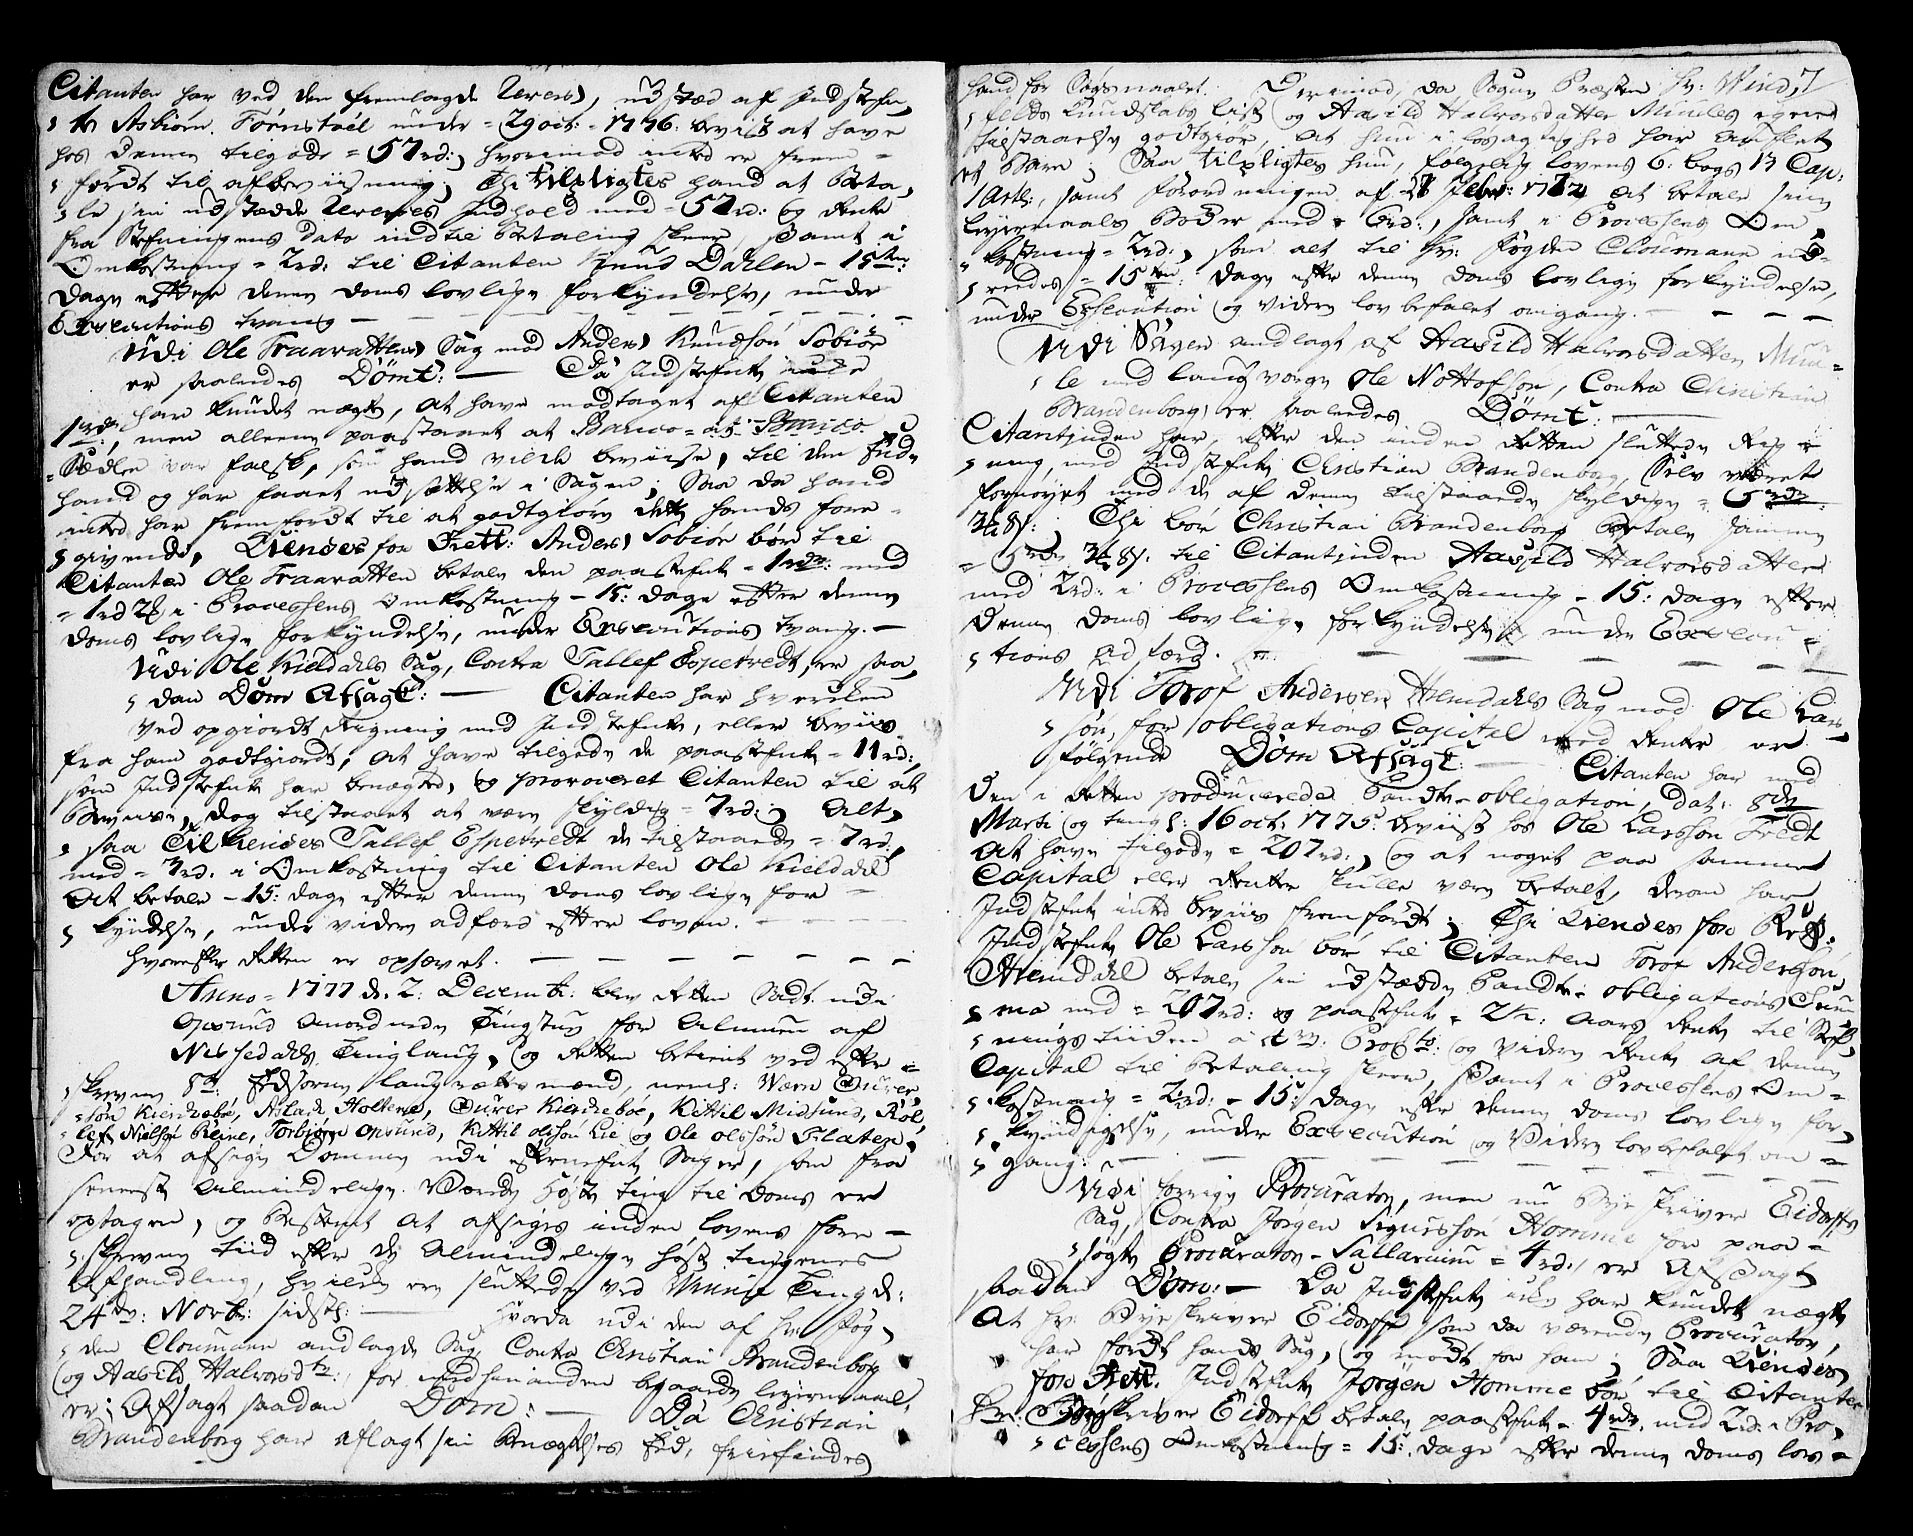 Citanten har ved den fremlagde Revers, udstæd af Indstefn,
te Asbiørn Tørnstøel under = 29 oct: = 1776: beviist at have
hos denne tilgode = 57rd:, hvorimod inted er frem =
ført til afbeviisning; Thi tilpligtes hand at beta,
le sin udstædde Reverses Indhold med = 57rd: og Rente
fra Stefningens dato indtil betaling skeer, samt i
Omkostning = 2rd: til Citanten Knud Dahlen = 15ten:
Dage efter denne doms lovlige forkyndelse, under
Executions tvang —
Udi Ole Fraarattens Sag mod Anders Knudsøn Sobiør
er saaledes Dømt: — Da Indstefnte icke
har kundet nægte, at have modtaget af Citanten
1rdr:, men alleene paastaaet at Banco =
= Sædlen var falsk, som hand vilde beviise, til den Ende
hand og har faaet udsættelse i Sagen; Saa da hand
inted har fremført til at godtgiøre dette hands fore =
givende, Kiendes for Rett: Anders Sobiør bør til
Citanten Ole Fraaratten betale den paastefnte = 1rdr: med
= 1rd 2 i Processens Omkostning = 15: dage efter denne
doms lovlige forkyndelse, under Executions tvang. —
Udi Ole Kieldahls Sag, Contra Tallef Espetvedt, er saa,
dan Dom Afsagt: — Citanten har hverken
ved opgiordt Regning med Indstefnte, eller beviis
fra ham godtgiordt, at have tilgode de paastefnte = 11rd:,
som Indstefnte har benegted, og provoceret Citanten til at
beviise, dog tilstaaet at være skyldig = 7rd:; Alt,
saa Tilkiendes Tallef Espetvedt de tilstaaede = 7rd:,
med = 3rd. i Omkostning til Citanten Ole Kieldahl
At betale = 15: dage efter denne doms lovlige for =
kyndelse, under videre adfærd efter loven. —
hvorefter Retten er ophævet. —
Anno = 1777 d. 2: Decembr: blev Retten sadt udi
Opsund anordnede Tingstue for Almuen af
Nissedahls Tinglaug, og Retten betient ved efter =
skrevne 8te: Edsorne laugrættes mænd, nemlig: Wærn Giurer,
søn Kierchebøe, Aslach Holtene, Giurer Kierchebøe, Kittil Midsund, Røl,
lef Nielsøn Reine, Torbiørn Opsund, Kittil Olssøn Lie og Ole Olssøn Flaten.
For at afsige Dommen udi efternefnte Sager, som fra
seneste Almindelige Værende Høste ting til doms er
optagen, og bestemt at afsiges inden lovens fore =
skrevne tiid efter de Almindelige høst tingenes
Afhandling, hvilke ere sluttede ved Ting d:
24de: Novbr: sidstl: — Hvorda udi den af hr: Fog,
den Cloumann andlagde Sag, Contra Christian Brandenborg
og Aasild Halvorsdtr:, for med hinanden begaaede leyermaal,
er; Afsagt saadan Dom: — Da Christian
Brandenborg har aflagt sin Benegtelses Eed, frifindes
hand for Søgsmaalet. Derimod, da Sogne Præsten Hr: Wind, 7
felds kundskabs liste og Aasild Halvorsdatter Muules egen
tilstaaelse godtgiør, at hun i løsagtighed har aufled
et Barn; Saa tilpligtes hun, følgelig lovens 6: bogs 13 Cap:
1 Artl:, samt forordningen af 28 Febr: 1772 at betale sine
leyermaals bøder med = 6rd:, samt i Processens Om,
kostning = 2rd:, som alt til hr: fogden Cloumann ud =
reedes = 15ten: dage efter denne doms lovlige forkyndelse,
under Execution og videre lov befalet omgang. —
Udi Sagen andlagt af Aasild Halvorsdatter Muu =
le med laugværge Ole Nottolfsøn, Contra Christian
Brandenborg er saaledes Dømt: —
Citantinden har, efter den inden Retten sluttede Reg =
ning, med Indstefnte Christian Brandenborg, Selv været
fornøyet med de af denne tilstaaede skyldige = 5rdr
3½ s: Thi bør Christian Brandenborg betale samme
= 5rdr 3½ s: til Citantinden Aasild Halvorsdatter
med 2rd: i Processens Omkostning = 15: dage efter
denne doms lovlige forkyndelse, under Execu =
tions adfærd. —
Udi Torof Andersen Hemdahls Sag mod Ole Lars,
søn, for obligations Capital med Renter, er
følgende Dom Afsagt: — Citanten har med
den i Retten producerede Pandte-obligation, dat: 8de
Marti og tingl: 16 oct: 1775: beviist hos Ole Larsson Tredt
at have tilgode = 207rd:, og at noget paa samme
Capital eller Renter skulle være betalt, derom har
Indstefnte inted beviis fremført; Thi Kiendes for Rett:
Indstefnte Ole Larsson bør til Citanten Torof Andersøn
Hemdahl betale sin udstædde Pandte = obligations Sum
ma med = 207rd: og paastefnte = 2½: aars Rente til Stef,
nings tiiden à 4re. Procto: og videre Rente af denne
Capital til betaling skeer, samt i Processens Om =
kostning = 2rd: = 15: dage efter denne doms lovlige for,
kyndigelse, under Execution og videre lovbefalet om =
gang: —
Udi forrige Procurator, men nu Bye skriver Eidorffs
Sag, Contra Jørgen Sigurssøn Homme for paa =
søgte Procurator = Sallarium = 4rd:, er Afsagt
saadan Dom: — Da Indstefnte icke har kundet nægte
At hr: Byeskriver Eidorff som da værende Procurator,
har ført hands Sag, og mødt for ham; Saa Kiendes
for Rett. Indstefnte Jørgen Homme bør til Citanten
Hr: Byeskriver Eidorff betale paastefnte = 4rdr. med 2rd. i Pro,
cessens Omkostning = 15: dage efter denne doms lov =